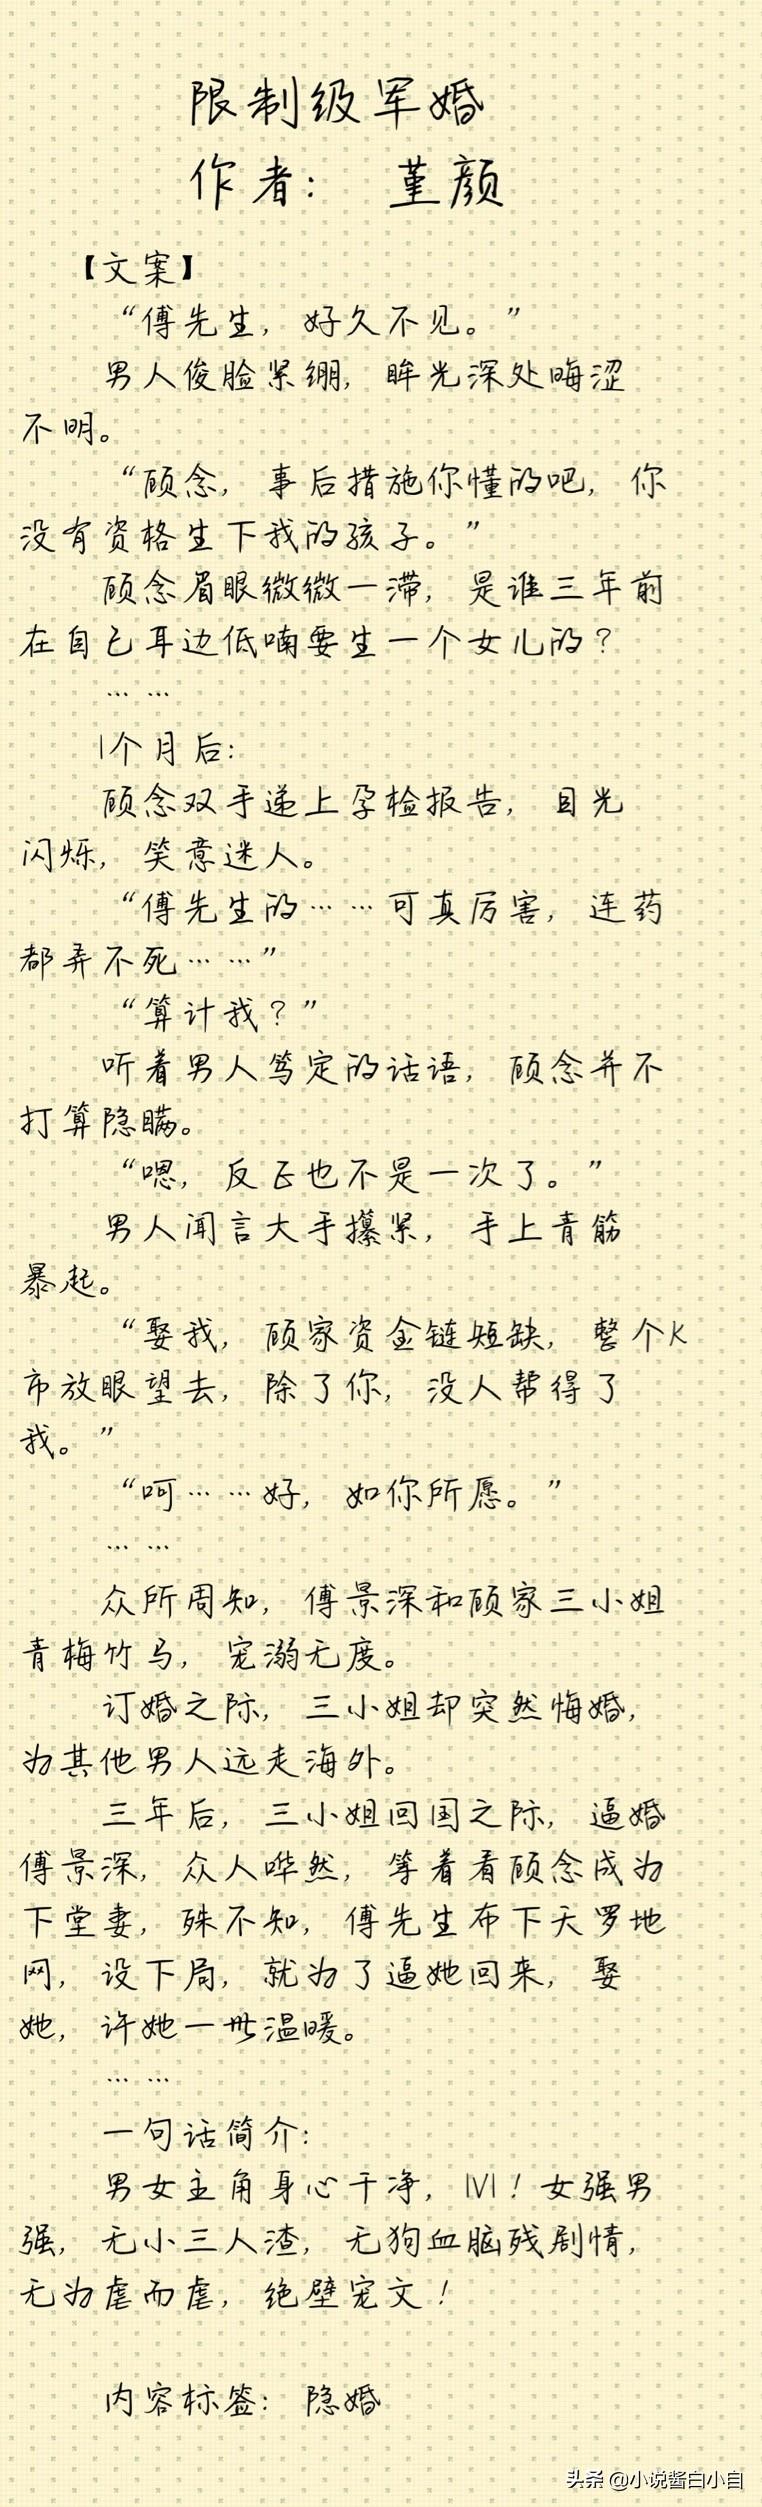 限制级军婚
作者： 堇颜
【文案】
“傅先生，好久不见。”
男人俊脸紧绷，眸光深处晦涩
不明。
“顾念，事后措施你懂的吧，你
没有资格生下我的孩子。”
顾念眉眼微微一滞，是谁三年前
在自己耳边低喃要生一个女儿的？
……
1个月后：
顾念双手递上孕检报告，目光
闪烁，笑意迷人。
“傅先生的……可真厉害，连药
都弄不死……”
“算计我？”
听着男人笃定的话语，顾念并不
打算隐瞒。
“嗯，反正也不是一次了。”
男人闻言大手攥紧，手上青筋
暴起。
“娶我，顾家资金链短缺，整个K
市放眼望去，除了你，没人帮得了
我。”
“呵……好，如你所愿。”
……
众所周知，傅景深和顾家三小姐
青梅竹马，宠溺无度。
订婚之际，三小姐却突然悔婚，
为其他男人远走海外。
三年后，三小姐回国之际，逼婚
傅景深，众人哗然，等着看顾念成为
下堂妻，殊不知，傅先生布下天罗地
网，设下局，就为了逼她回来，娶
她，许她一世温暖。
……
一句话简介：
男女主角身心干净，1V1！女强男
强，无小三人渣，无狗血脑残剧情，
无为虐而虐，绝壁宠文！
内容标签：隐婚
头条 @小说酱白小白